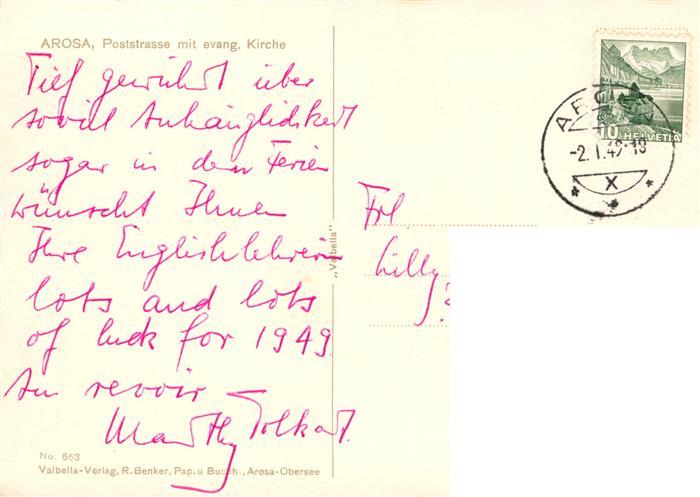 AROSA, Poststrasse mit evang. Kirche
Tief gerührt über
soviel Anhänglichkeit
sogar in den Ferien
wünscht Ihnen
Ihre Englischlehrerin
lots and lots
of luck for 1949.
Au revoir
Marthy
No. 663
Valbella-Verlag, R. Benker, Pap. u Buchh., Arosa-Obersee
„Valbella"
10 HELVETIA
-2. I. 49-18
X
Frl.
Lilly